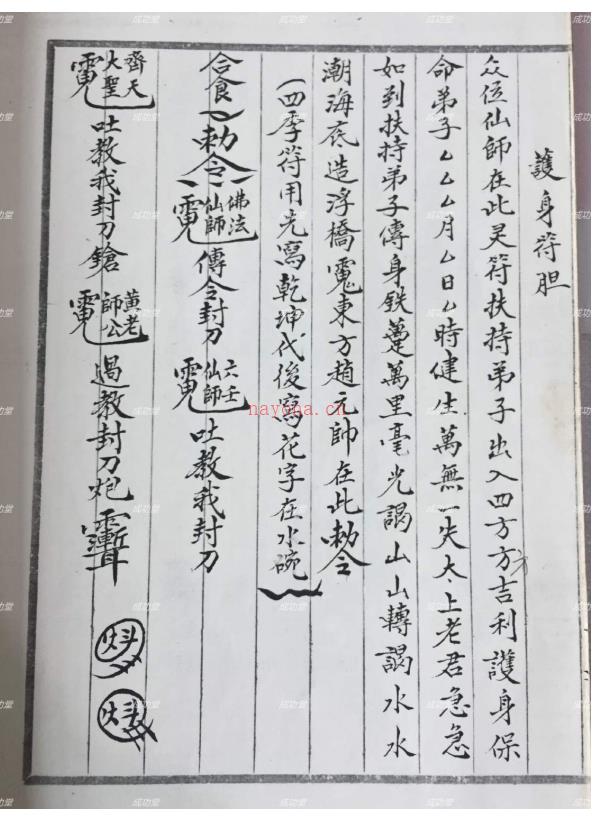 護身符胆
众位仙師在此灵符扶持弟子出入四方方吉利護身保
命弟子厶厶厶月厶日厶時健生萬無一失太上老君急急
如到扶持弟子傳身鉄 萬里毫光謁山山轉謁水水
潮海底造浮橋 東方趙元帥在此勅令
(四季符用先寫乾坤代後寫花字在水碗
合食 勅令 佛法仙師 傳令封刀 六壬仙師 吐教我封刀
齊天大聖 吐教我封刀鎗 黃老師公 過教封刀炮
nayona.cn
成功堂